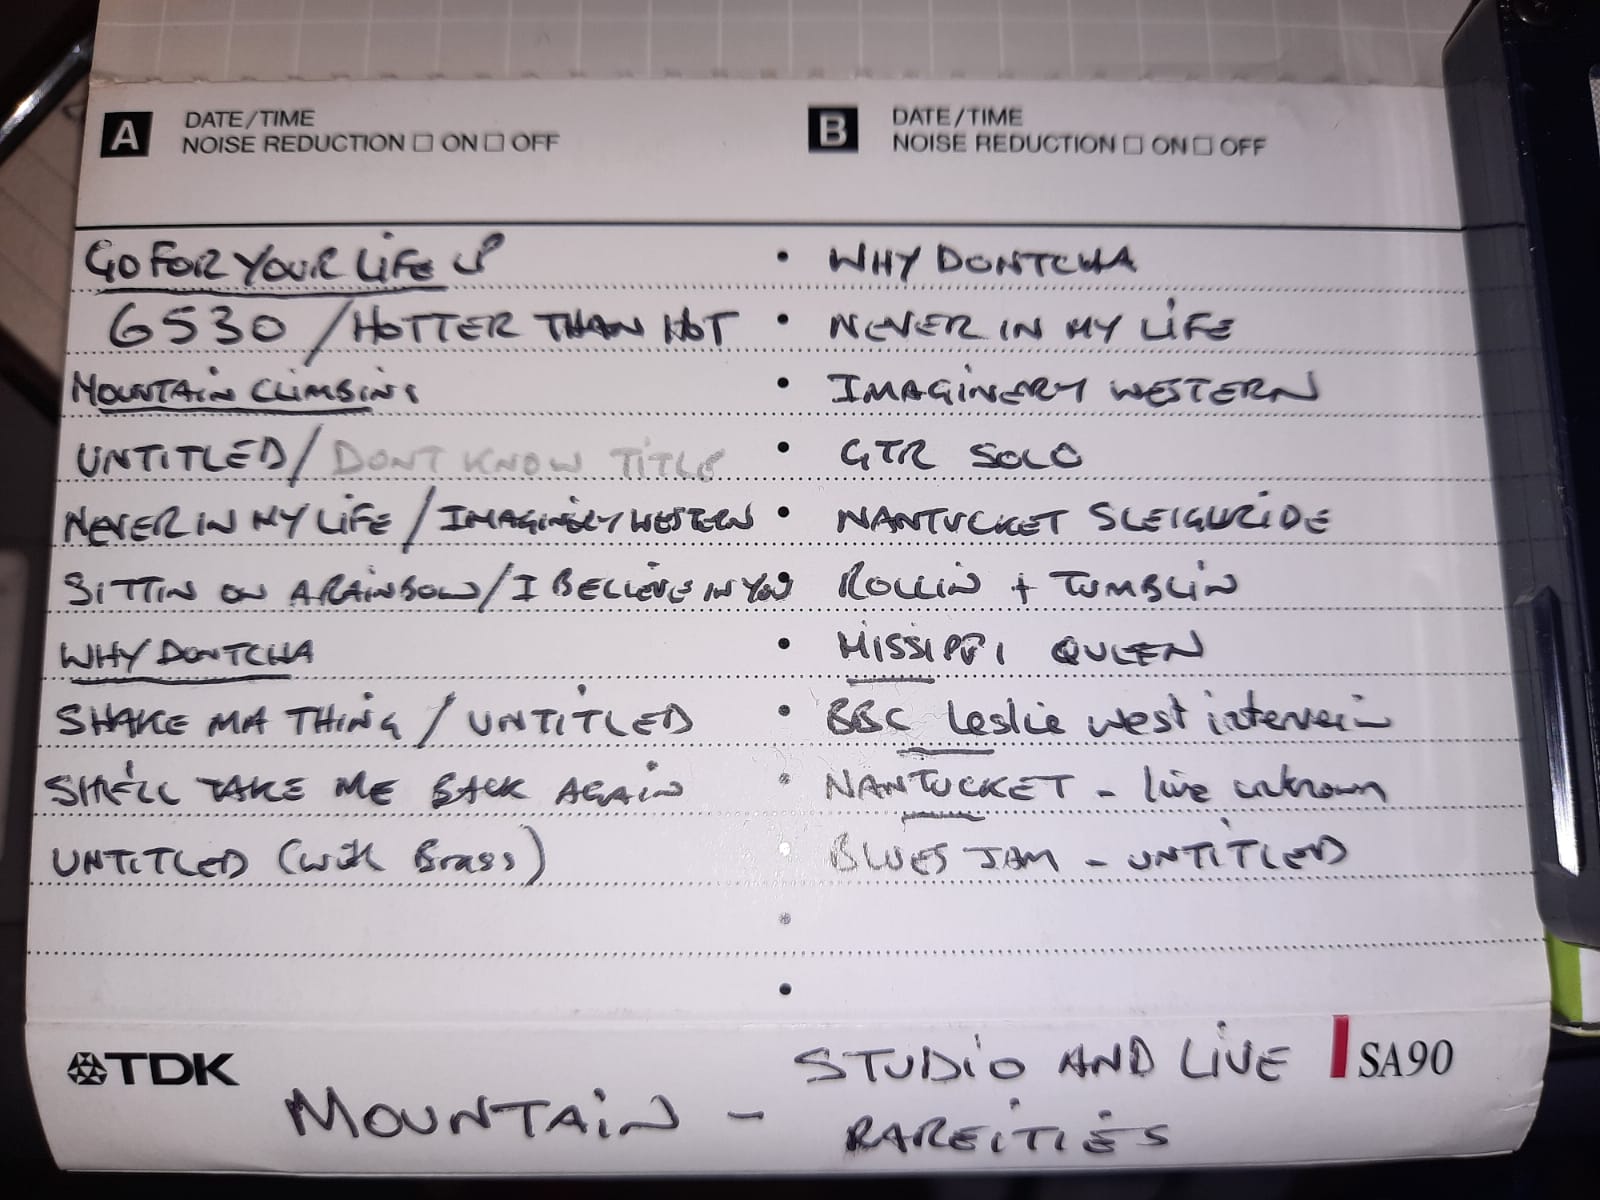 A DATE/TIME
NOISE REDUCTION □ ON □ OFF
GO FOR YOUR LIFE
6530 / HOTTER THAN HOT
MOUNTAIN CLIMBING
UNTITLED / DONT KNOW TITLE
NEVER IN MY LIFE / IMAGINERY WESTERN
SITTIN ON A RAINBOW / I BELIEVE IN YOU
WHY DONTCHA
SHAKE MA THING / UNTITLED
SHE'LL TAKE ME BACK AGAIN
UNTITLED (with Brass)
B DATE/TIME
NOISE REDUCTION □ ON □ OFF
• WHY DONTCHA
• NEVER IN MY LIFE
• IMAGINERY WESTERN
• GTR SOLO
• NANTUCKET SLEIGHRIDE
• ROLLIN + TUMBLIN
• MISSISSIPPI QUEEN
• BBC Leslie West intervein
• NANTUCKET - live unknown
• BLUES JAM - UNTITLED
TDK
SA90
MOUNTAIN - STUDIO AND LIVE
RAREITIES